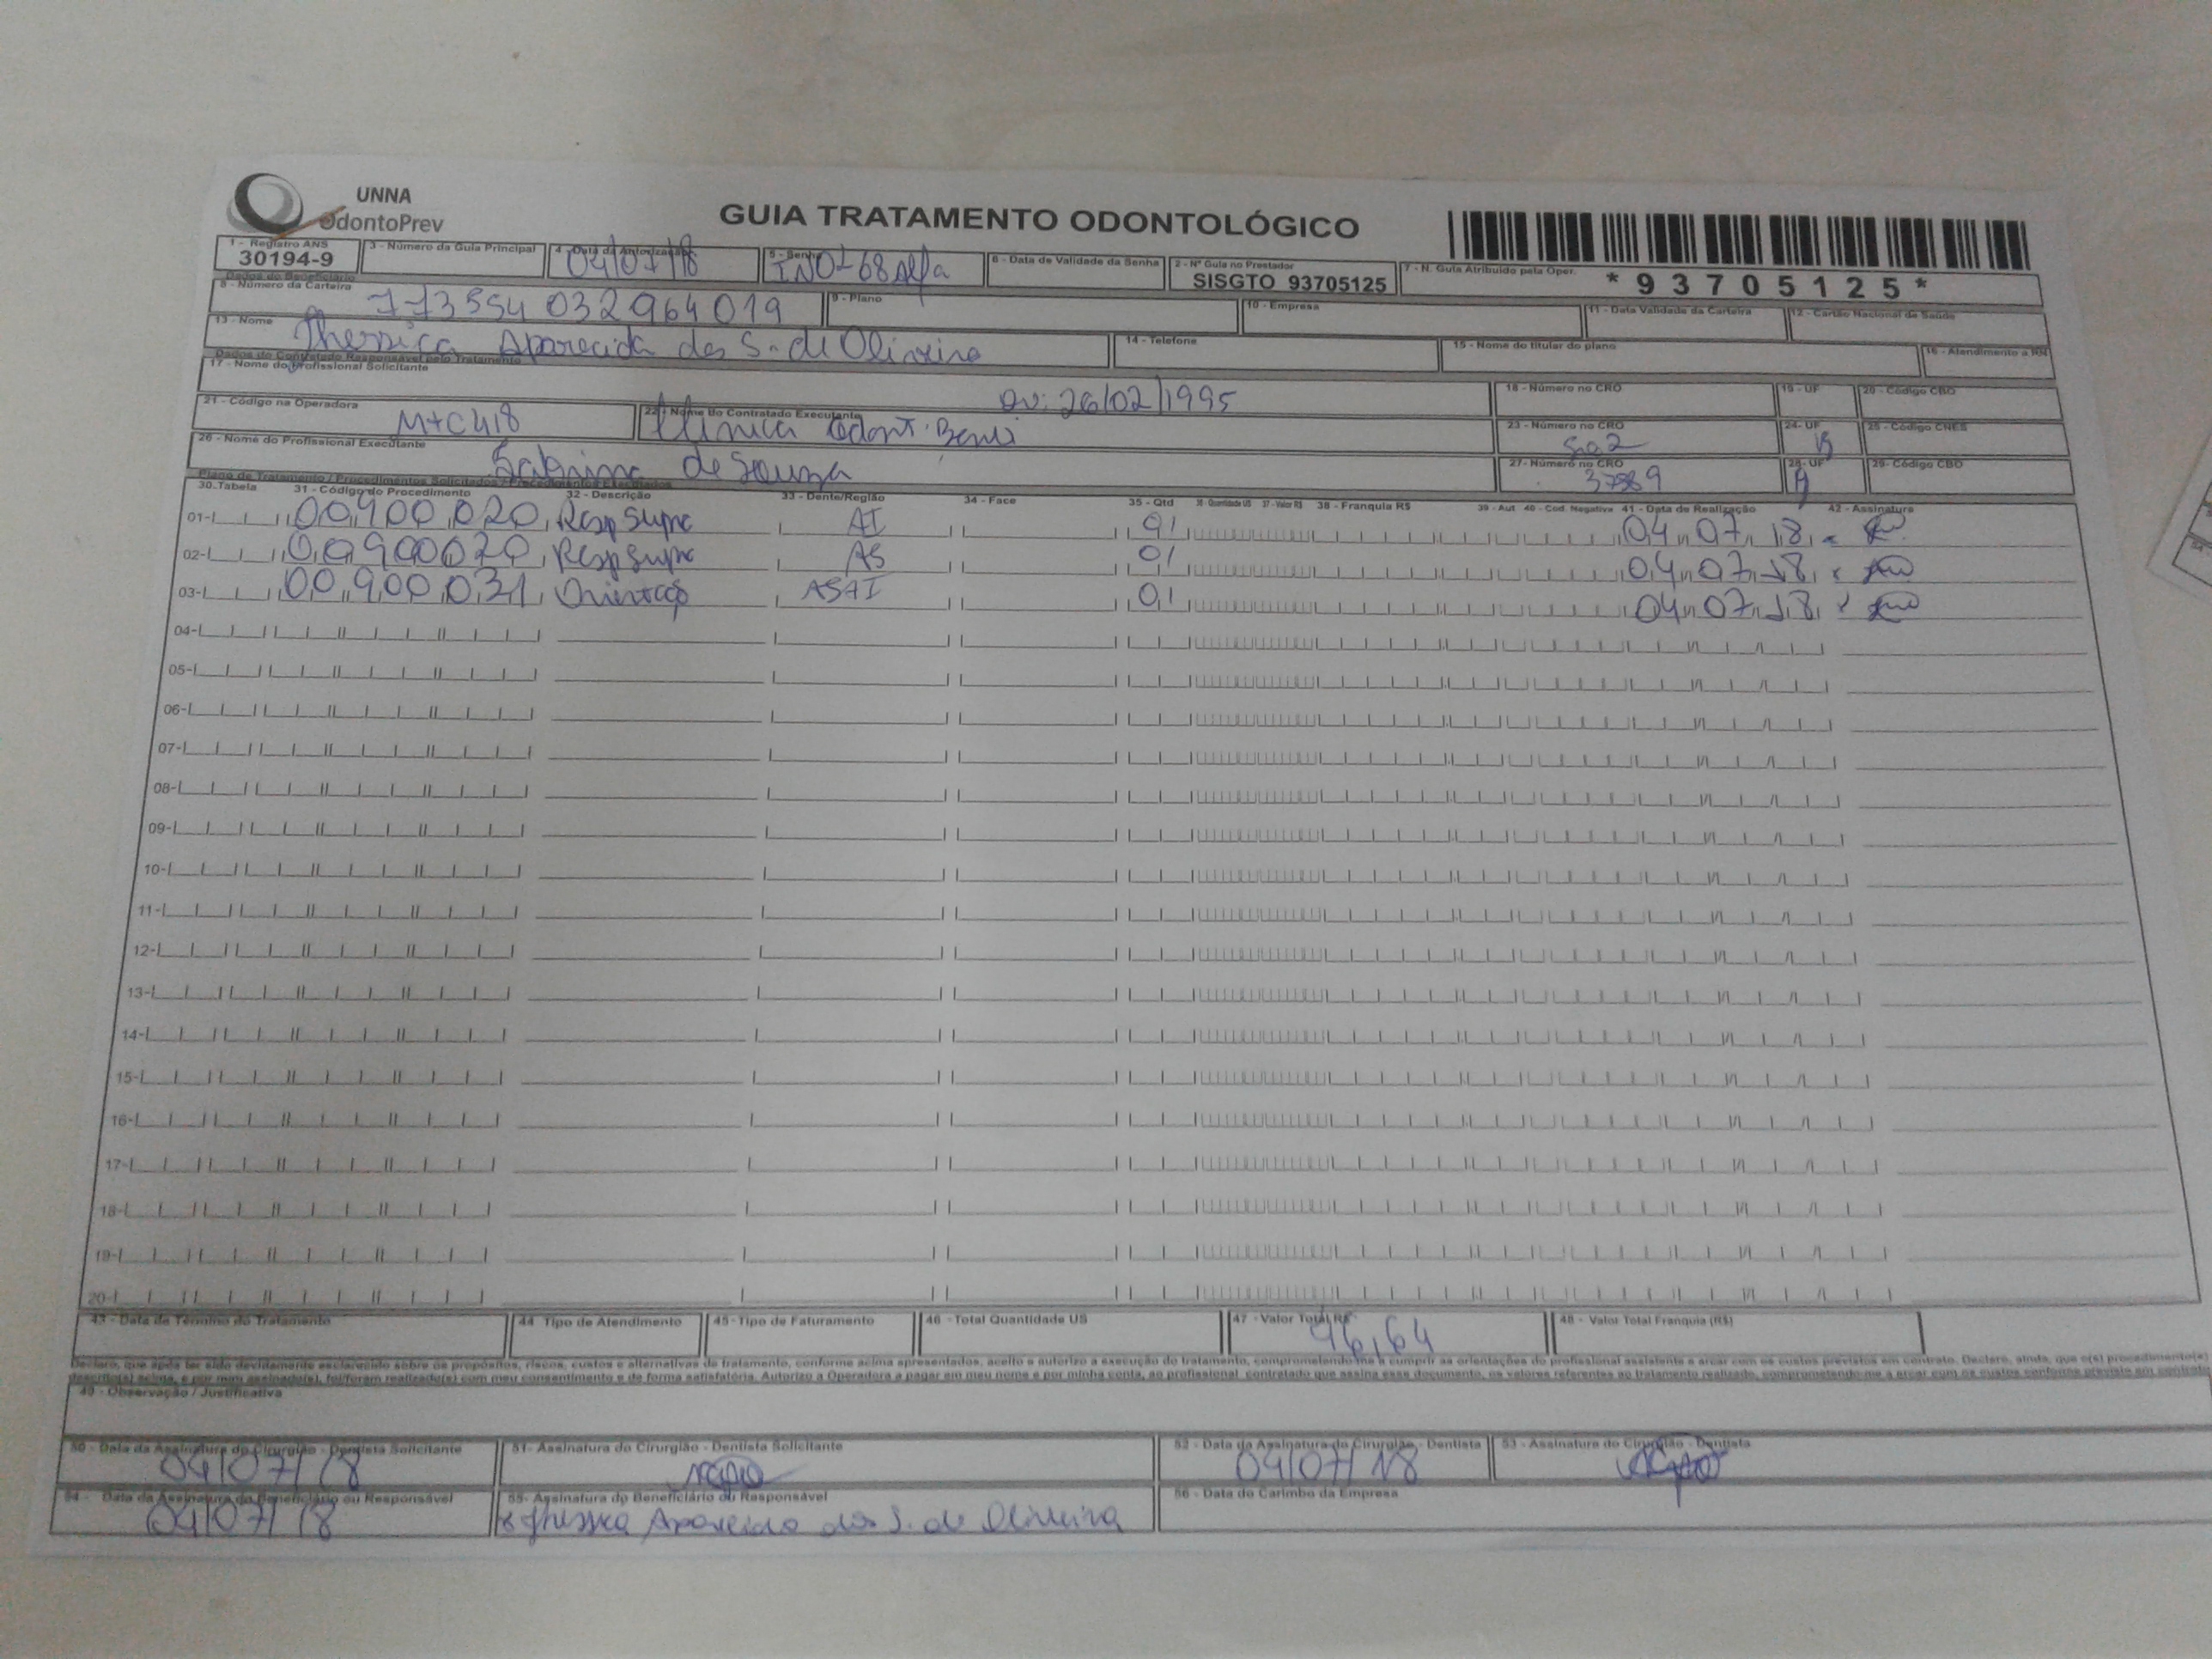 UNNA
OdontoPrev
GUIA TRATAMENTO ODONTOLÓGICO
1 - Registro ANS
30194-9
3 - Número da Guia Principal
4 - Data da Autorização
04/07/18
5 - Senha
6 - Data de Validade da Senha
2 - Nº Guia no Prestador
SISGTO 93705125
7 - N. Guia Atribuído pela Oper.
*93705125*
Dados do Beneficiário
8 - Número da Carteira
773554032964019
9 - Plano
10 - Empresa
11 - Data Validade da Carteira
12 - Cartão Nacional de Saúde
13 - Nome
Jhessica Aparecida dos S. de Oliveira
14 - Telefone
15 - Nome do titular do plano
16 - Atendimento a RN
Dados do Contratado Responsável pelo Tratamento
17 - Nome do Profissional Solicitante
26/02/1995
18 - Número no CRO
19 - UF
20 - Código CBO
21 - Código na Operadora
22 - Nome do Contratado Executante
Clinica Odont.
23 - Número no CRO
24 - UF
25 - Código CNES
26 - Nome do Profissional Executante
Sabrina de Souza
27 - Número no CRO
28 - UF
29 - Código CBO
Plano de Tratamento / Procedimentos Solicitados / Procedimentos Executados
30. Tabela 31 - Código do Procedimento 32 - Descrição 33 - Dente/Região 34 - Face 35 - Qtd 36 - Quantidade US 37 - Valor R$ 38 - Franquia R$ 39 - Aut 40 - Cod. Negativa 41 - Data de Realização 42 - Assinatura
01- 00900020 Rasp Supra AI 01 04 07 18
02- 00900020 Rasp Supra AS 01 04 07 18
03- 00900031 Orientação ASAI 01 04 07 18
04-
05-
06-
07-
08-
09-
10-
11-
12-
13-
14-
15-
16-
17-
18-
19-
20-
43 - Data de Término do Tratamento
44 Tipo de Atendimento
45 - Tipo de Faturamento
46 - Total Quantidade US
47 - Valor Total R$
96,64
48 - Valor Total Franquia (R$)
Declaro, que após ter sido devidamente esclarecido sobre os propósitos, riscos, custos e alternativas de tratamento, conforme acima apresentados, aceito e autorizo a execução do tratamento, comprometendo-me a cumprir as orientações do profissional assistente e arcar com os custos previstos em contrato. Declaro, ainda, que o(s) procedimento(s)
descrito(s) acima, e por mim assinado(s), foi/foram realizado(s) com meu consentimento e de forma satisfatória. Autorizo a Operadora a pagar em meu nome e por minha conta, ao profissional contratado que assina esse documento, os valores referentes ao tratamento realizado, comprometendo-me a arcar com os custos conforme previsto em contrato.
49 - Observação / Justificativa
50 - Data da Assinatura do Cirurgião - Dentista Solicitante
04/07/18
51- Assinatura do Cirurgião - Dentista Solicitante
52 - Data da Assinatura do Cirurgião - Dentista
04/07/18
53 - Assinatura do Cirurgião - Dentista
54 - Data da Assinatura do Beneficiário ou Responsável
04/07/18
55- Assinatura do Beneficiário ou Responsável
x Jhessica Aparecida dos S. de Oliveira
56 - Data do Carimbo da Empresa